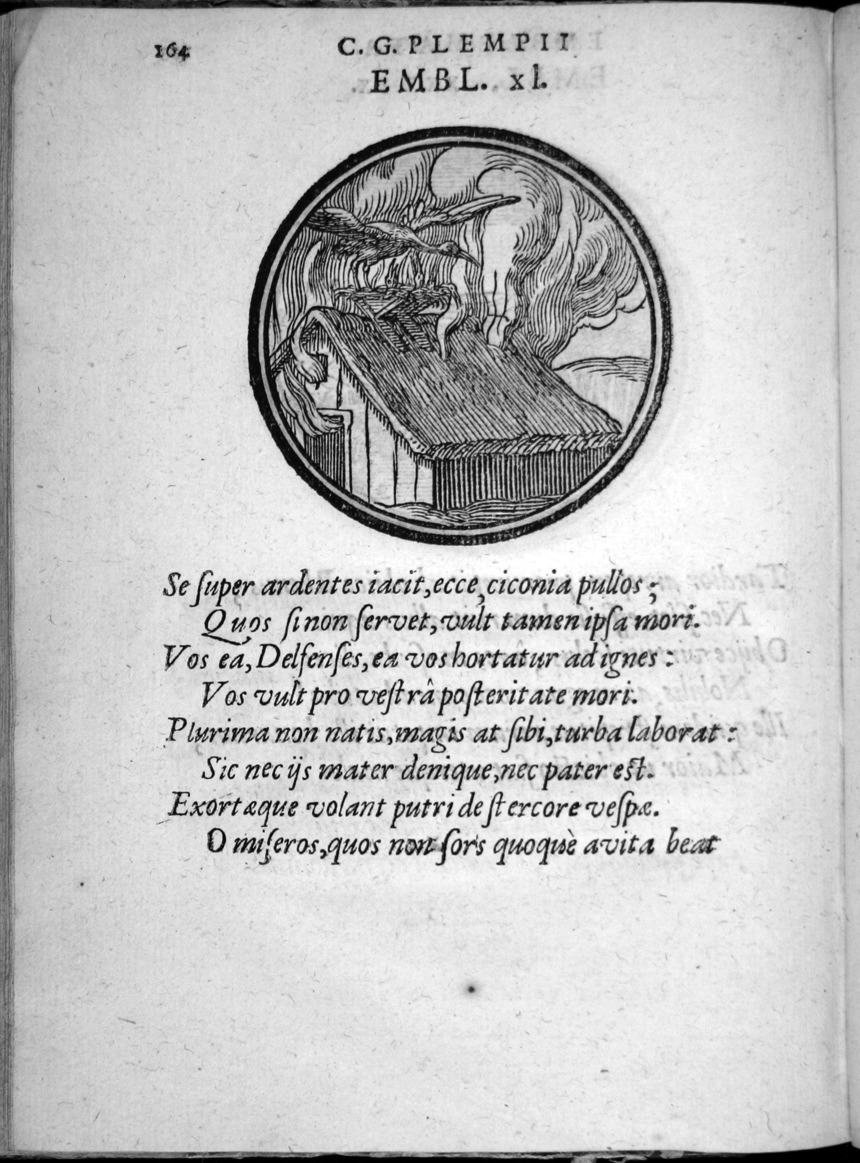 164
C. G. PLEMPII
EMBL. xl.
Se ſuper ardentes iacit, ecce, ciconia pullos;
Quos ſi non ſervet, vult tamen ipſa mori.
Vos ea, Delfenſes, ea vos hortatur ad ignes:
Vos vult pro veſtrâ poſteritate mori.
Plurima non natis, magis at ſibi, turba laborat:
Sic nec ijs mater denique, nec pater eſt.
Exortæque volant putri de ſtercore veſpæ.
O miſeros, quos non ſors quoquè avita beat